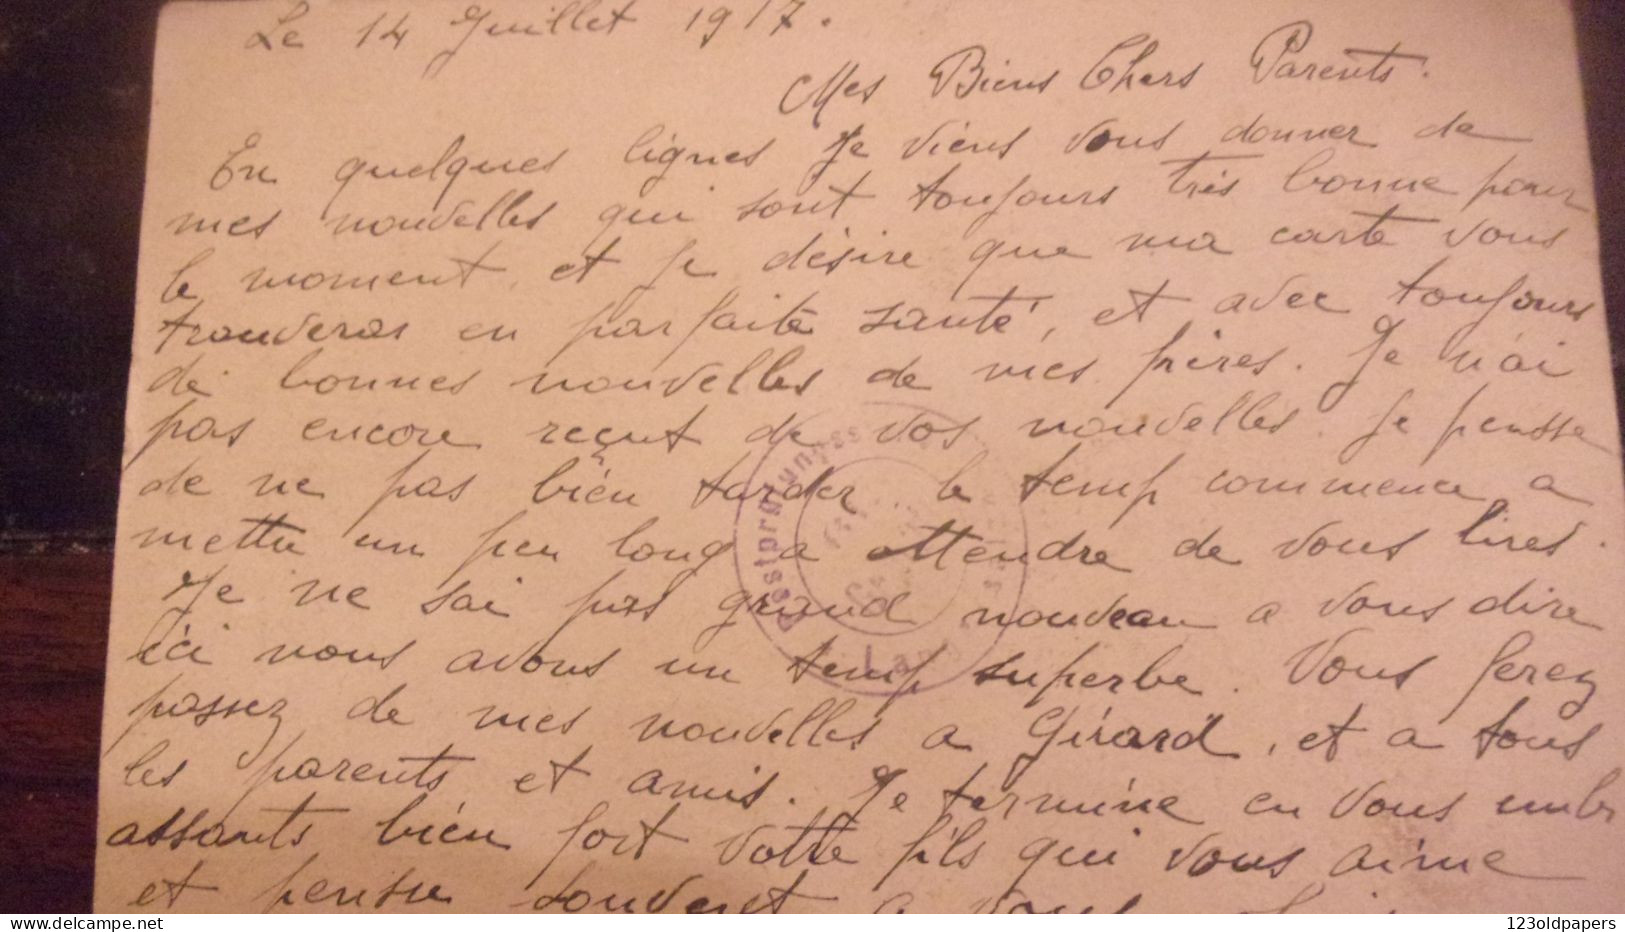 Le 14 Juillet 1917.
Mes Biens Chers Parents.
En quelques lignes je viens vous donner de
mes nouvelles qui sont toujours très bonne pour
le moment, et je désire que ma carte vous
trouveras en parfaite santé, et avec toujours
de bonnes nouvelles de mes frères. Je n'ai
pas encore reçut de vos nouvelles. Je pensse
de ne pas bien tarder.. le temp commence a
mettre un peu long a attendre de vous lires.
Je ne sai pas grand nouveau a vous dire
ici nous avons un temp superbe. Vous ferez
passez de mes nouvelles a Girard, et a tous
les parents et amis. Je termine en vous embr
assants bien fort votre fils qui vous aime
et pensse souvent a vous
Postprüfungss
123oldpapers